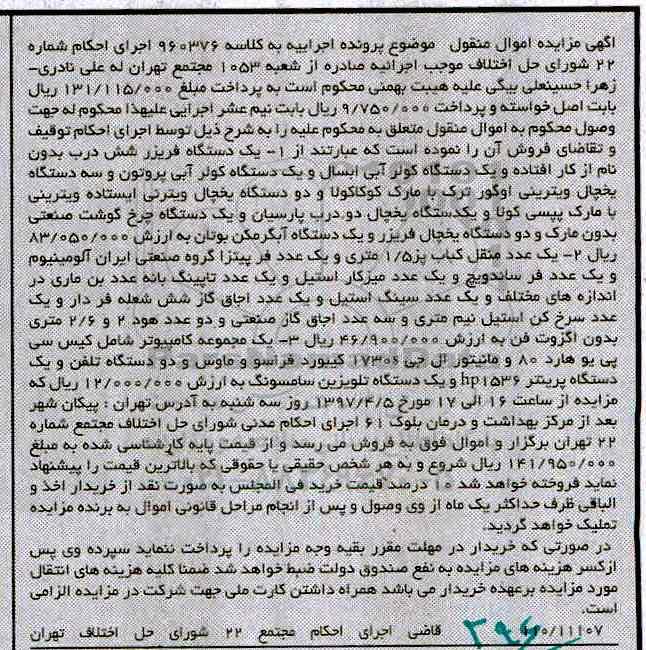 آگهی مزایده اموال منقول موضوع پرونده اجراییه به کلاسه ۹۶۰۳۷۶ اجرای احکام شماره
۲۲ شورای حل اختلاف موجب اجرائیه صادره از شعبه ۱۰۵۳ مجتمع تهران له علی نادری-
زهرا حسینعلی بیگی علیه هیبت بهمنی محکوم است به پرداخت مبلغ ۱۳۱/۱۱۵/۰۰۰ ریال
بابت اصل خواسته و پرداخت ۹/۷۵۰/۰۰۰ ریال بابت نیم عشر اجرایی علیهذا محکوم له جهت
وصول محکوم به اموال منقول متعلق به محکوم علیه را به شرح ذیل توسط اجرای احکام توقیف
و تقاضای فروش آن را نموده است که عبارتند از ۱- یک دستگاه فریزر شش درب بدون
نام از کار افتاده و یک دستگاه کولر آبی ابسال و یک دستگاه کولر آبی پروتون و سه دستگاه
یخچال ویترینی اوگور ترک با مارک کوکاکولا و دو دستگاه یخچال ویترنی ایستاده ویترینی
با مارک پپسی کولا و یکدستگاه یخچال دو درب پارسیان و یک دستگاه چرخ گوشت صنعتی
بدون مارک و دو دستگاه یخچال فریزر و یک دستگاه آبگرمکن بوتان به ارزش ۸۳/۰۵۰/۰۰۰
ریال ۲- یک عدد منقل کباب پز۱/۵ متری و یک عدد فر پیتزا گروه صنعتی ایران آلومینیوم
و یک عدد فر ساندویچ و یک عدد میزکار استیل و یک عدد تاپینگ بانه عدد بن ماری در
اندازه های مختلف و یک عدد سینگ استیل و یک عدد اجاق گاز شش شعله فر دار و یک
عدد سرخ کن استیل نیم متری و سه عدد اجاق گاز صنعتی و دو عدد هود ۲ و ۲/۶ متری
بدون اگزوت فن به ارزش ۴۶/۹۰۰/۰۰۰ ریال ۳- یک مجموعه کامپیوتر شامل کیس سی
پی یو هارد ۸۰ و مانیتور ال جی ۱۷۳۰s کیبورد فراسو و ماوس و دو دستگاه تلفن و یک
دستگاه پرینتر hp۱۵۳۶ و یک دستگاه تلویزین سامسونگ به ارزش ۱۲/۰۰۰/۰۰۰ ریال که
مزایده از ساعت ۱۶ الی ۱۷ مورخ ۱۳۹۷/۴/۵ روز سه شنبه به آدرس تهران : پیکان شهر
بعد از مرکز بهداشت و درمان بلوک ۶۱ اجرای احکام مدنی شورای حل اختلاف مجتمع شماره
۲۲ تهران برگزار و اموال فوق به فروش می رسد و از قیمت پایه کارشناسی شده به مبلغ
۱۴۱/۹۵۰/۰۰۰ ریال شروع و به هر شخص حقیقی یا حقوقی که بالاترین قیمت را پیشنهاد
نماید فروخته خواهد شد ۱۰ درصد قیمت خرید فی المجلس به صورت نقد از خریدار اخذ و
الباقی ظرف حداکثر یک ماه از وی وصول و پس از انجام مراحل قانونی اموال به برنده مزایده
تملیک خواهد گردید.
در صورتی که خریدار در مهلت مقرر بقیه وجه مزایده را پرداخت ننماید سپرده وی پس
ازکسر هزینه های مزایده به نفع صندوق دولت ضبط خواهد شد ضمنا کلیه هزینه های انتقال
مورد مزایده برعهده خریدار می باشد همراه داشتن کارت ملی جهت شرکت در مزایده الزامی
است.
۱۱۰/۱۱۱۰۷ قاضی اجرای احکام مجتمع ۲۲ شورای حل اختلاف تهران